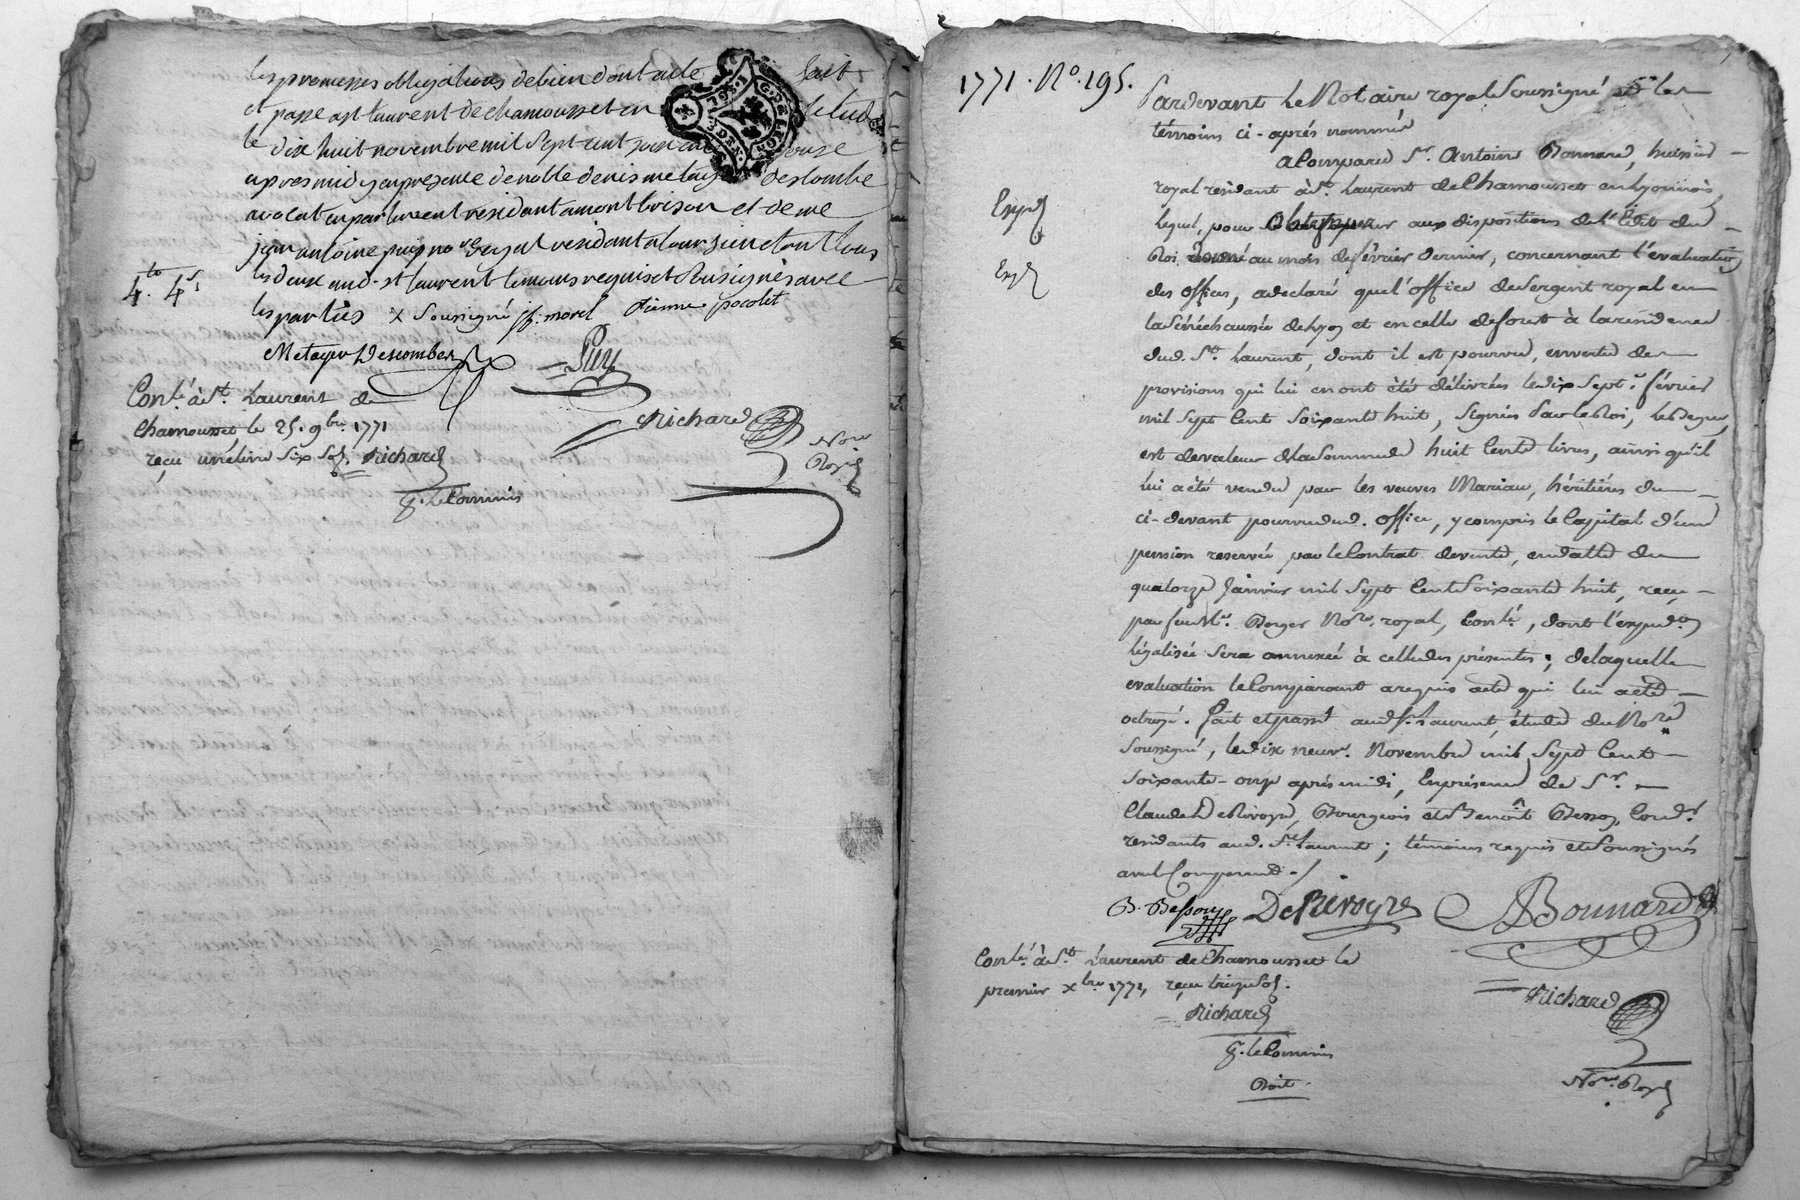 les promesses obligations de bien dont acte fait
et passé a st laurent de chamousset en letude
le dix huit novembre mil sept cent soixante onze
apres midy en presence de noble denis metayer descombe
avocat en parlement residant a montbrison et de me
jean antoine puy nore Royal residant a tous
les deux aud. st laurent temoins requis et soussignés avec
les parties x soussigné jf. morel
4.to 4.s
Metayer Descombes Puy
Conlé à St. Laurent de
Chamousset le 25. 9bre. 1771
reçu une livre six sols. Richard
Richard
Nore
Royal
g. le Commis
1771. No. 195.
Pardevant Le Notaire royal Soussigné et les
témoins ci-après nommés
a Comparu Sr. Antoine Bonnard, huissier
royal residant à St. Laurent de Chamousset en Lyonnois
Expé
lequel, pour obtemperer aux dispositions de l'Edit du
Roi, donné au mois de fevrier dernier, concernant l'évaluation
Expé
des offices, a declaré que l'office de Sergent royal en
la Sénéchaussée de Lyon et en celle de forest à la residence
dud. St. Laurent, dont il est pourvu, en vertu des
provisions qui lui en ont été délivrées le dix sept fevrier
mil sept Cent Soixante huit, Signées Par le Roi,
est de valeur de la Somme de huit Cents livres, ainsi qu'il
lui a été vendu par les veuves Mariau, héritières du
ci-devant pourvu dud. office, y compris le Capital d'une
pension reservée par le Contrat de vente, en datte du
quatorze Janvier mil Sept Cent Soixante huit, reçu
par feu Me. Berger Nore. royal, Conlé, dont l'expedon
légalisée Sera annexée à celle des présentes; de laquelle
evaluation le Comparant a requis acte qui lui a été
octroyé. fait et passé aud. St. Laurent, étude du Nore
Soussigné, le dix neuf Novembre mil Sept Cent
Soixante-onze après midi, En présence de Sr.
Claude De Rivoyre, Bourgeois et Sr Benoît Besson,
residants aud. St. Laurent; témoins requis et Soussignés
avec le Comparant ./
B. Besson DeRivoyre ABonnard
Conlé à St. Laurent de Chamousset le
premier xbre 1771, reçu treize sols.
Richard
Richard
g. le Commis
Nore. Royal